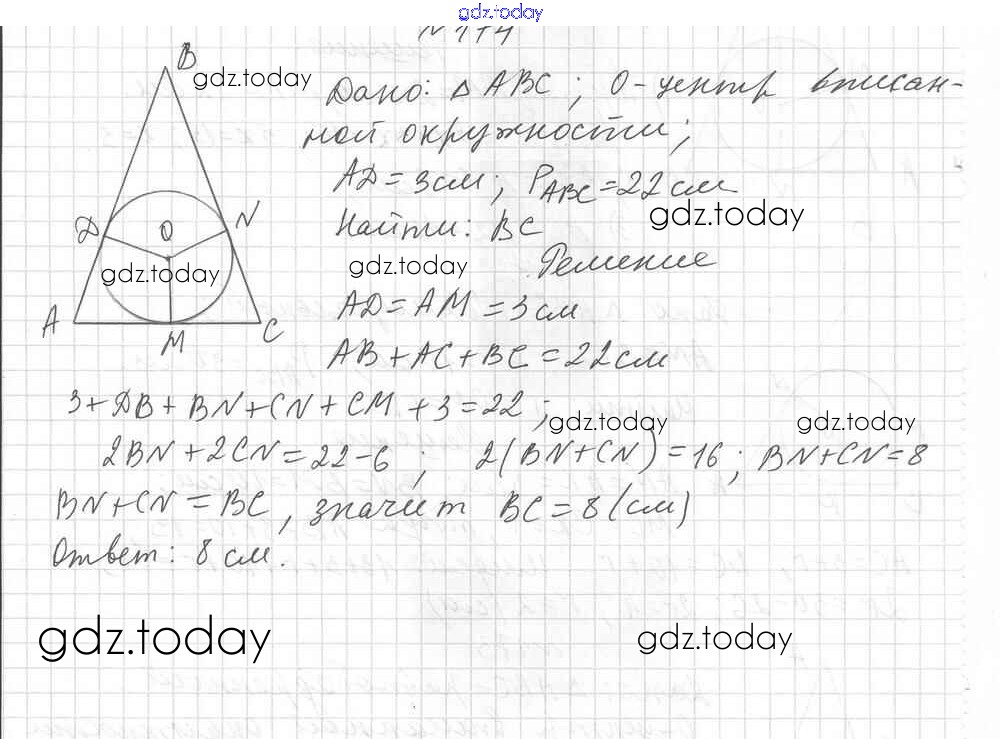 gdz.today
№ 174
B
gdz.today
Дано: △ ABC ; O - центр вписан-
ной окружности;
AD = 3 см ; P_ABC = 22 см
gdz.today
D O N
Найти: BC
gdz.today
gdz.today
Решение
AD = AM = 3 см
A M C
AB + AC + BC = 22 см
3 + DB + BN + CN + CM + 3 = 22 ;
gdz.today
gdz.today
2BN + 2CN = 22 - 6 ; 2(BN + CN) = 16 ; BN + CN = 8
BN + CN = BC, значит BC = 8 (см)
Ответ: 8 см.
gdz.today
gdz.today